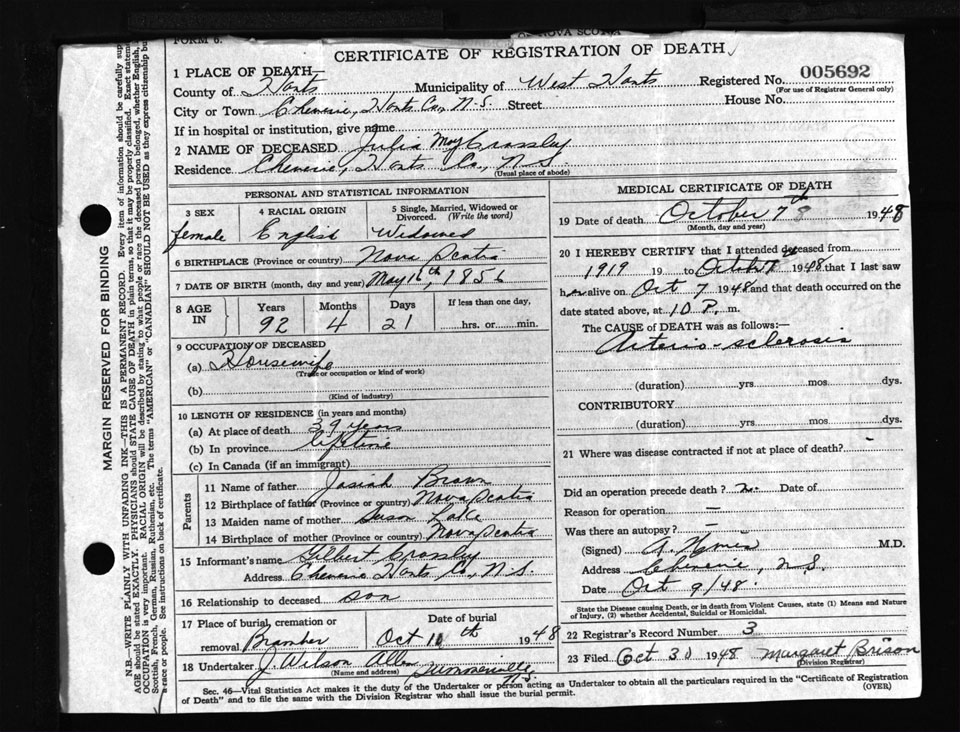 FORM 6.
NOVA SCOTIA
CERTIFICATE OF REGISTRATION OF DEATH
1 PLACE OF DEATH—
County of Hants Municipality of West Hants Registered No. 005692
(For use of Registrar General only)
City or Town Cheverie, Hants Co., N.S. Street House No.
If in hospital or institution, give name
2 NAME OF DECEASED Julia May Crossley
Residence Cheverie, Hants Co., N.S.
(Usual place of abode)
PERSONAL AND STATISTICAL INFORMATION
3 SEX 4 RACIAL ORIGIN 5 Single, Married, Widowed or Divorced. (Write the word)
female English Widowed
6 BIRTHPLACE (Province or country) Nova Scotia
7 DATE OF BIRTH (month, day and year) May 16th, 1856
8 AGE IN Years Months Days If less than one day,
92 4 21 hrs. or min.
9 OCCUPATION OF DECEASED
(a) Housewife
(Trade or occupation or kind of work)
(b)
(Kind of industry)
10 LENGTH OF RESIDENCE (in years and months)
(a) At place of death 39 years
(b) In province lifetime
(c) In Canada (if an immigrant)
Parents
11 Name of father Josiah Brown
12 Birthplace of father (Province or country) Nova Scotia
13 Maiden name of mother Susan Lake
14 Birthplace of mother (Province or country) Nova Scotia
15 Informant's name Gilbert Crossley
Address Cheverie Hants Co., N.S.
16 Relationship to deceased son
17 Place of burial, cremation or removal Date of burial
Oct 10th 1948
18 Undertaker J. Wilson Allen Summerville N.S.
(Name and address)
MEDICAL CERTIFICATE OF DEATH
19 Date of death October 7th 1948
(Month, day and year)
20 I HEREBY CERTIFY that I attended deceased from
1919 19 to October 1948 that I last saw
h alive on Oct 7 1948 and that death occurred on the
date stated above, at 10 P. m.
The CAUSE of DEATH was as follows:—
Arterio-sclerosis
(duration) yrs mos dys.
CONTRIBUTORY
(duration) yrs. mos. dys.
21 Where was disease contracted if not at place of death? -
Did an operation precede death? no Date of
Reason for operation —
Was there an autopsy? —
(Signed) M.D.
Address Cheverie, N.S.
Date Oct 9/48.
State the Disease causing Death, or in death from Violent Causes, state (1) Means and Nature
of Injury, (2) whether Accidental, Suicidal or Homicidal.
22 Registrar's Record Number 3
23 Filed Oct 30 1948 Margaret Brison
(Division Registrar)
Sec. 46—Vital Statistics Act makes it the duty of the Undertaker or Person acting as Undertaker to obtain all the particulars required in the "Certificate of Registration
of Death" and to file the same with the Division Registrar who shall issue the burial permit. (OVER)
MARGIN RESERVED FOR BINDING
N.B.—WRITE PLAINLY WITH UNFADING INK—THIS IS A PERMANENT RECORD. Every item of information should be carefully
AGE should be stated EXACTLY. PHYSICIANS should STATE CAUSE OF DEATH in plain terms, so that it may be properly classified. Exact statement
OCCUPATION is very important. RACIAL ORIGIN will be described by stating to what people or race the deceased person belonged, whether English,
Scottish, French, German, Russian, Ruthenian, etc. The terms "AMERICAN" or "CANADIAN" SHOULD NOT BE USED as they express citizenship
a race or people. See instructions on back of certificate.